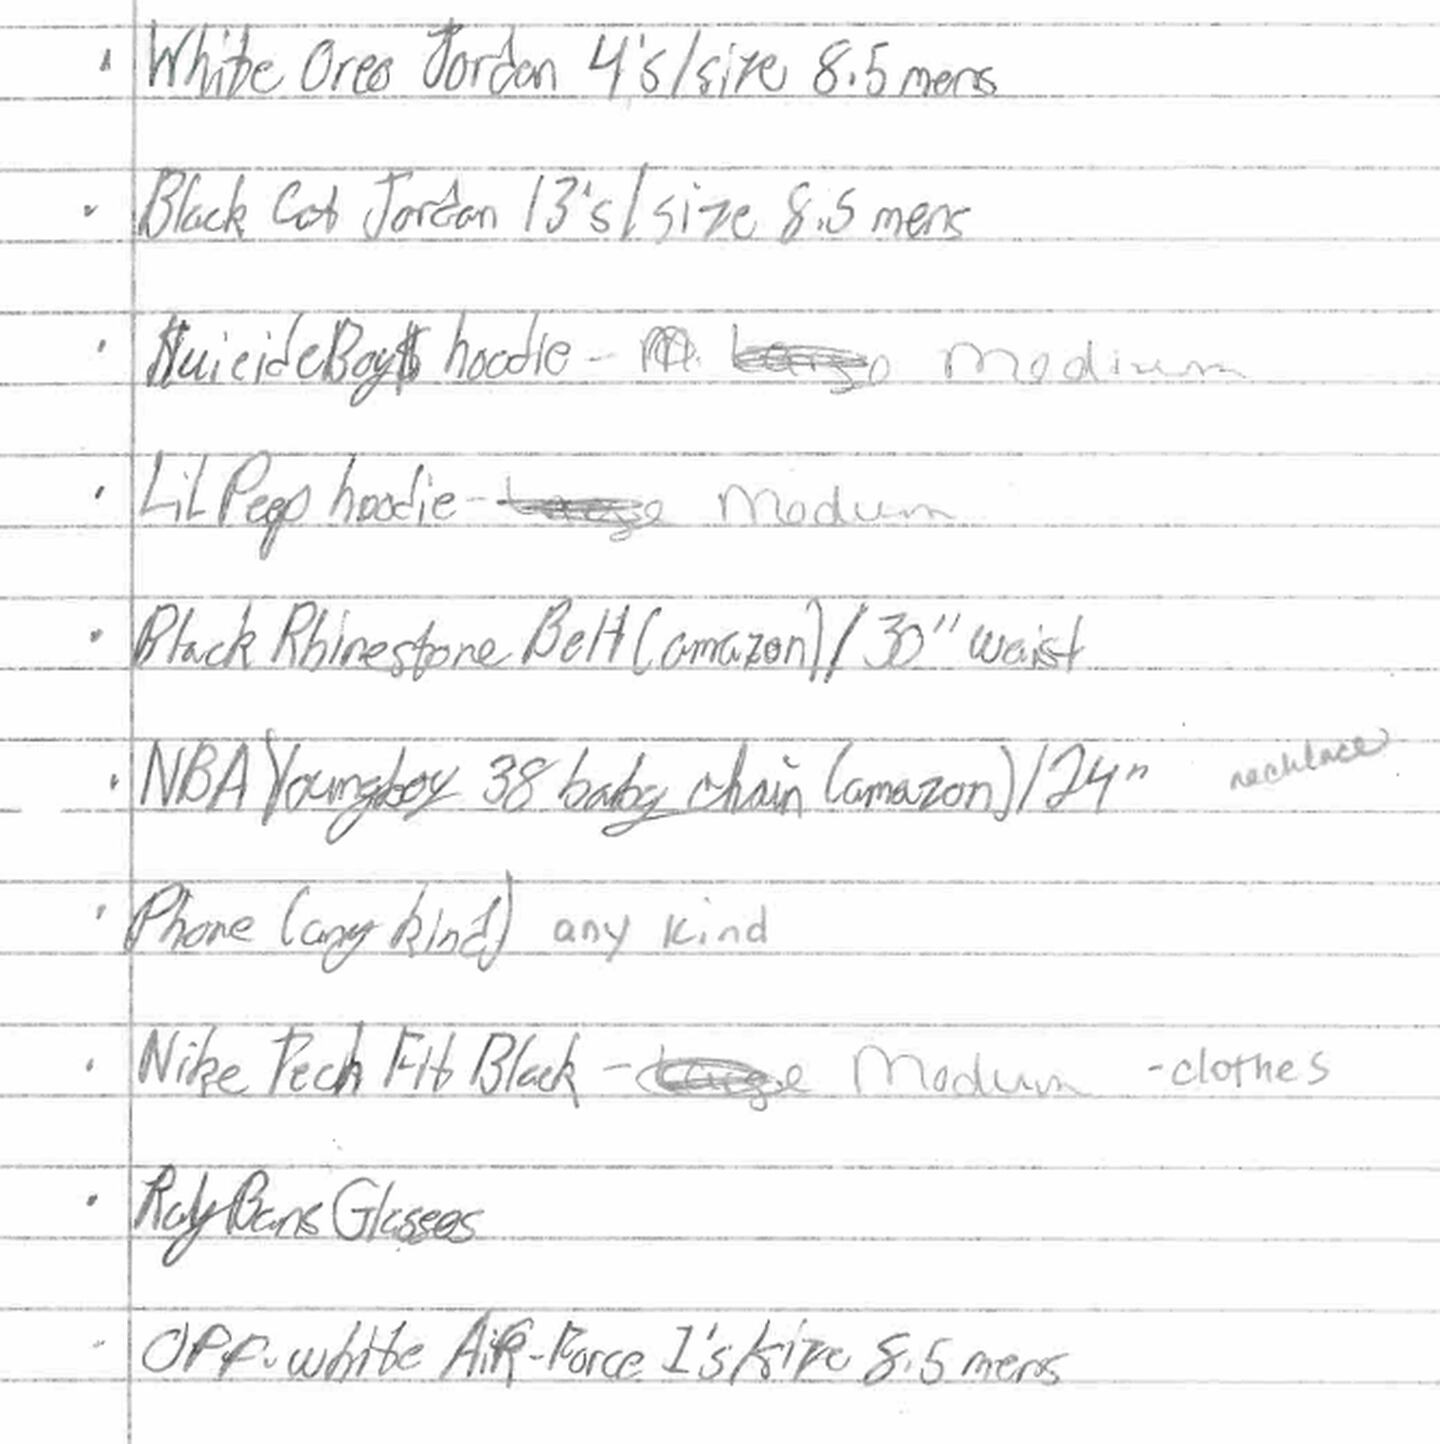 · White Oreo Jordan 4's/size 8.5 mens
· Black Cat Jordan 13's/size 8.5 mens
· $uicideBoy$ hoodie - M. Large Medium
· LiL Peep hoodie - Large Medium
· Black Rhinestone Belt (amazon)/30" waist
· NBA Youngboy 38 baby chain (amazon)/24" necklace
· Phone (any kind) any kind
· Nike Tech Fit Black - Large Medium - clothes
· RayBans Glasses
· Off-white AiR-Force 1's/size 8.5 mens